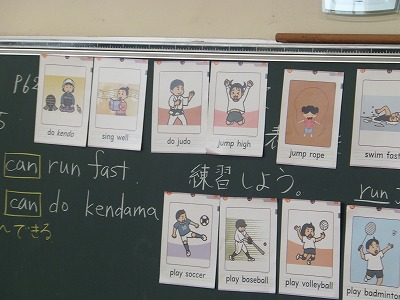 P62
do kendo
sing well
do judo
jump high
jump rope
swim fast
can run fast.
練習しよう。
run
can do kendama
〜できる
play soccer
play baseball
play volleyball
play badminton